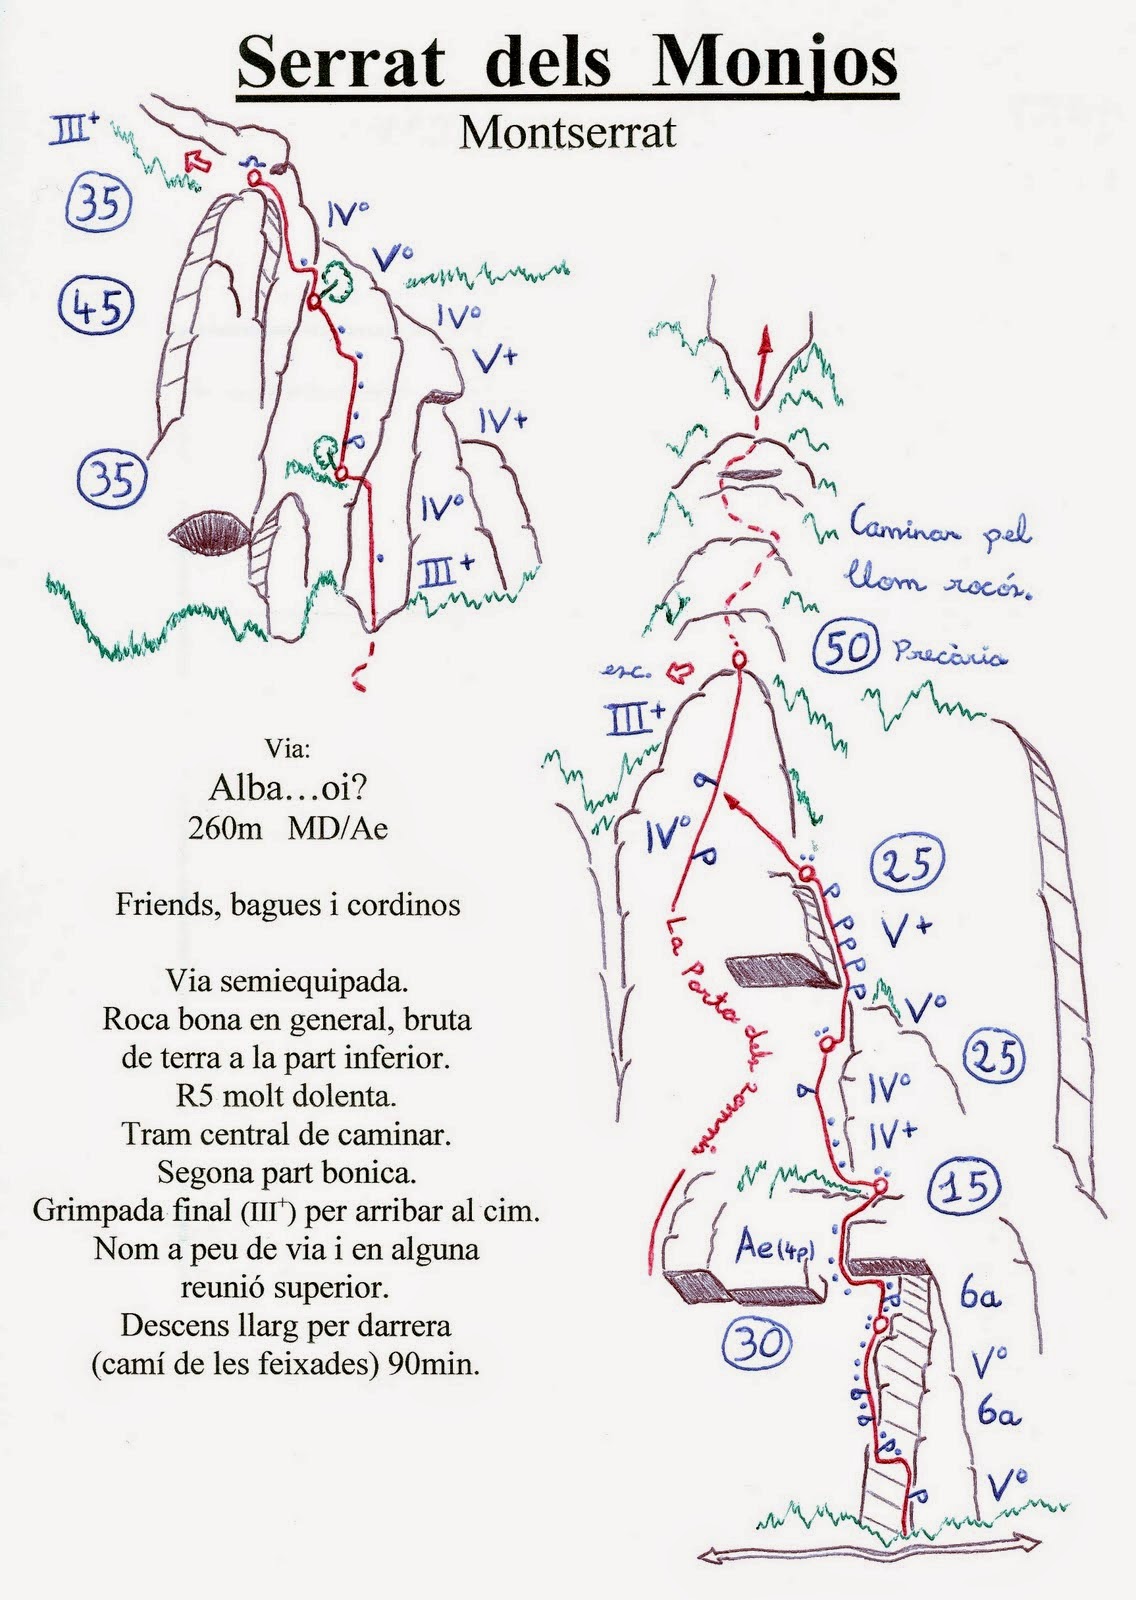 Serrat dels Monjos
Montserrat
III+
35
IV°
V°
45
IV°
V+
IV+
35
IV°
III+
Caminar pel
llom rocós.
50 Precària
esc.
III+
IV°
25
V+
La Porta dels somnis
V°
25
IV°
IV+
15
Ae (4p)
6a
30
V°
6a
V°
Via:
Alba...oi?
260m MD/Ae
Friends, bagues i cordinos
Via semiequipada.
Roca bona en general, bruta
de terra a la part inferior.
R5 molt dolenta.
Tram central de caminar.
Segona part bonica.
Grimpada final (III+) per arribar al cim.
Nom a peu de via i en alguna
reunió superior.
Descens llarg per darrera
(camí de les feixades) 90min.